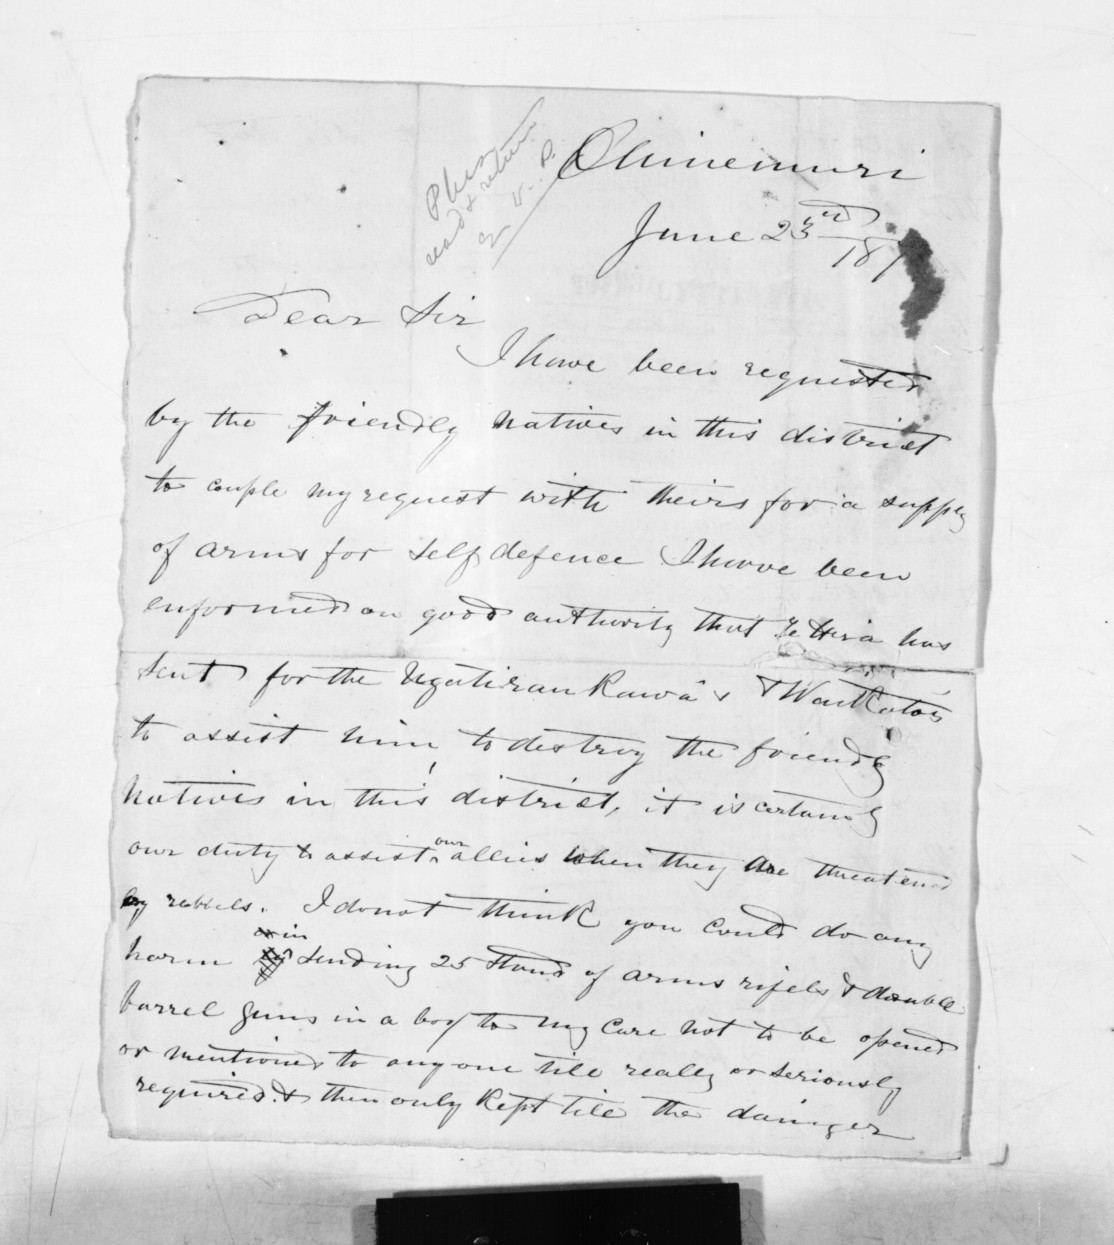 Please
read & return
Ohinemuri
June 23rd
187
Dear Sir
I have been requested
by the friendly natives in this district
to couple my request with theirs for a supply
of arms for self defence I have been
enformed on good authority that Te Hira has
sent for the Ngatiraukawa's & Waikatos
to assist him to destroy the friendly
natives in this district, it is certainly
our duty to assist our allies when they are threatened
by rebbels. I do not think you could do any
harm in sending 25 stand of arms rifels & double
barrel guns in a box to my care not to be opened
or mentioned to anyone till really or seriously
required & then only kept till the dainger